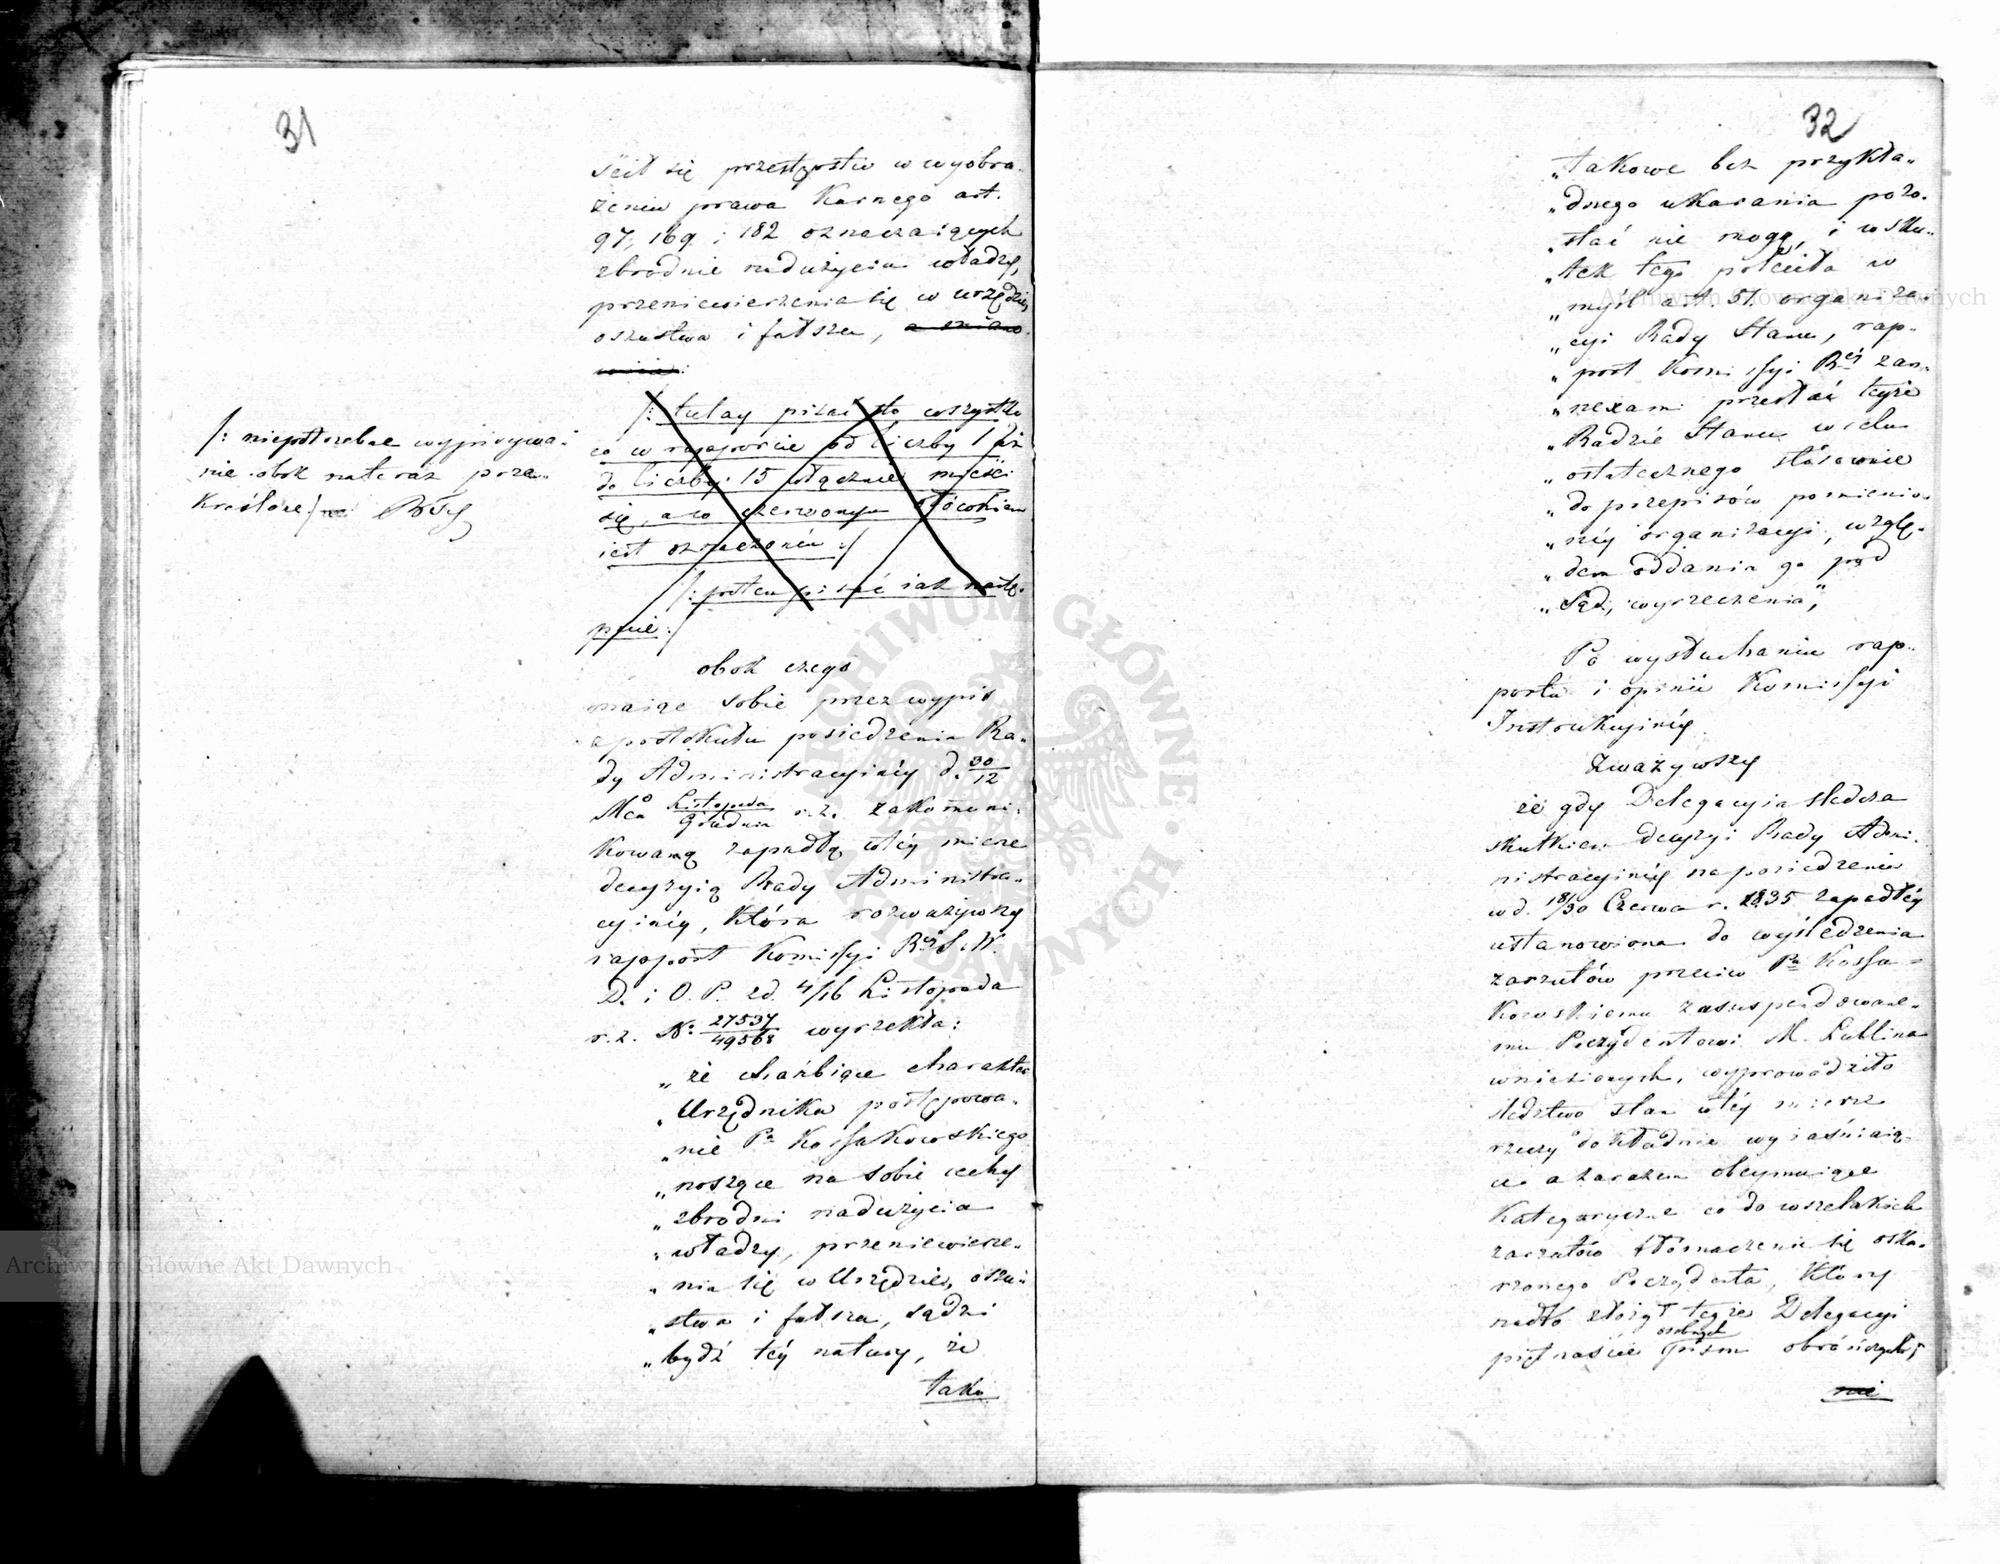 31
ścił się przestępstw w wyobra-
żeniu prawa Karnego art.
97, 169 i 182 oznaczaiących
zbrodnie nadużycia władzy,
przeniewierzenia się w urzędzie,
oszustwa i fałszu,
/: tutay pisać to wszystko
co w rapporcie od liczby 1 aż
do liczby 15 włącznie mieści
się, a co czerwonym ołówkiem
iest oznaczonem :/
/: potem pisać iak nastę-
pnie :/
/: niepotrzebne wypisywa-
nie obok nateraz prze-
kreślone :/
obok czego
maiąc sobie przez wypis
z protokułu posiedzenia Ra-
dy Administracyinéy d. 30/12
Mca Listopada/Grudnia r. z. zakommuni-
kowaną zapadłą w téy mierze
decyzyią Rady Administra-
cyinéy, która rozważywszy
rapport Kommissyi Rej S. W.
D. i O. P. z d. 4/16 Listopada
r. z. No 27537/49568 wyrzekła:
„że chańbiące charakter
„Urzędnika postępowa-
„nie Pa Kossakowskiego
„noszące na sobie cechy
„zbrodni nadużycia
„władzy, przeniewierze-
„nia się w Urzędzie, oszu-
„stwa i fałszu, sądzi
„bydź téy natury, że
takie
32
„takowe bez przykła-
„dnego ukarania pozo-
„stać nie mogą, i w sku-
„tek tego poleciła w
„myśl art. 51. organiza-
„cyi Rady Stanu, rap-
„port Kommissyi Rej z an-
„nexami przesłać teyże
„Radzie Stanu w celu
„ostatecznego stósownie
„do przepisów pomienio-
„néy organizacyi, wzglę-
„dem oddania go pod
„Sąd, wyrzeczenia,"
Po wysłuchaniu rap-
portu i opinii Kommissyi
Instrukcyinéy
Zważywszy
że gdy Delegacyia śledcza
skutkiem decyzyi Rady Admi-
nistracyinéy na posiedzeniu
w d. 18/30 Czerwca r. 1835 zapadłéy
ustanowiona do wyśledzenia
zarzutów przeciw Pu Kossa-
kowskiemu zasuspendowane-
mu Prezydentowi M. Lublina
wniesionych, wyprowadziła
śledztwo stan w téy mierze
rzeczy dokładnie wyiaśniaią-
ce a zarazem obeymuiące
kategoryczne co do wszelakich
zarzutów tłómaczenie się oska-
rzonego Prezydenta, który
nadto złożył teyże Delegacyi
piętnaście osobnych pism obrończych;
nie
Archiwum Główne Akt Dawnych
Archiwum Główne Akt Dawnych
ARCHIWUM GŁÓWNE AKT DAWNYCH